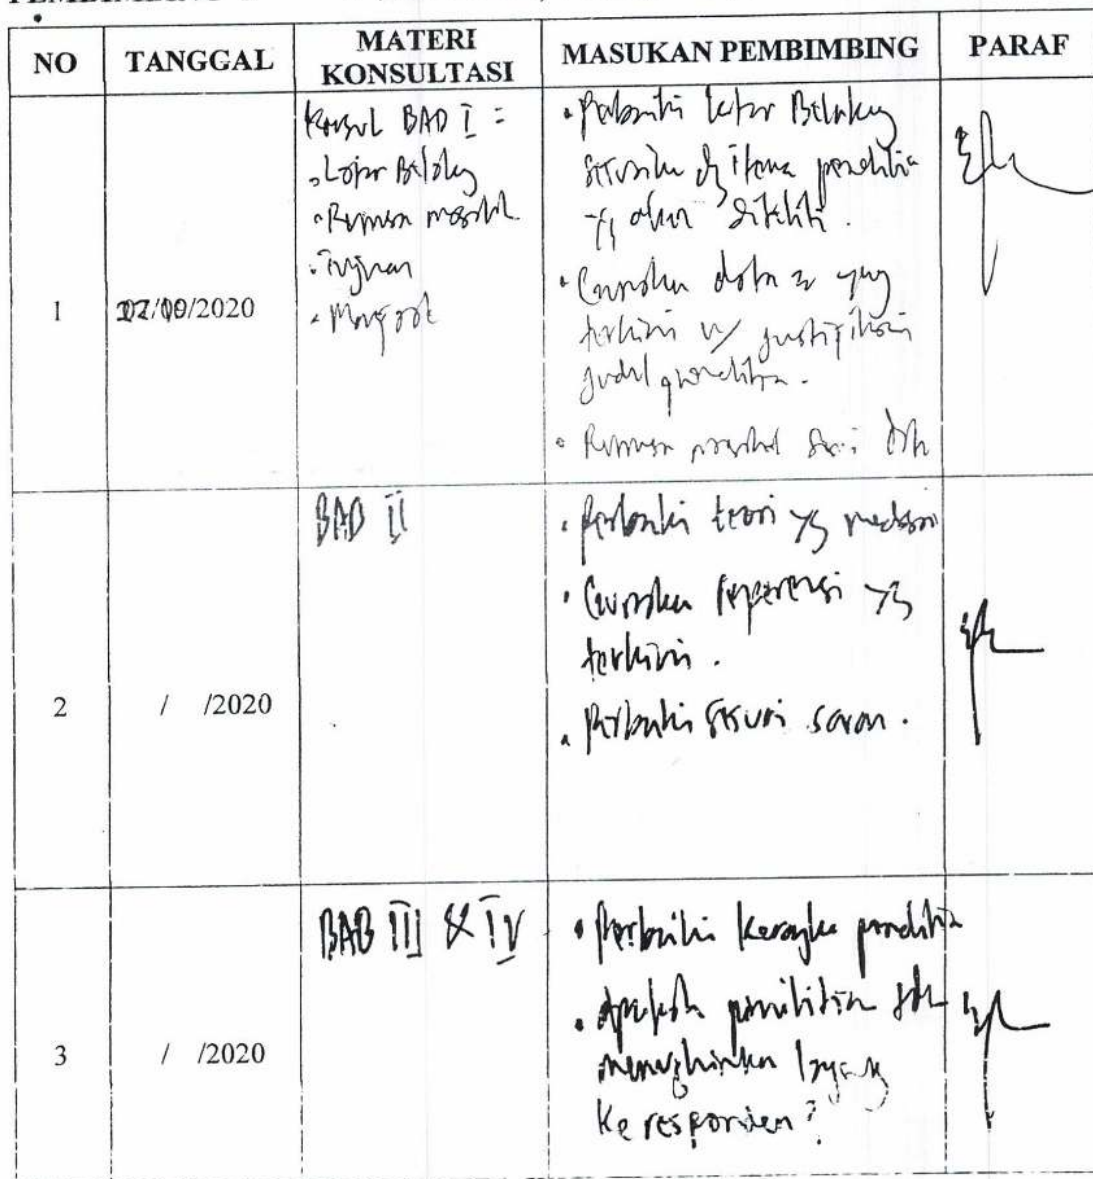 NO
TANGGAL
MATERI
KONSULTASI
MASUKAN PEMBIMBING
PARAF
1
/2020
Konsul BAB I =
• Latar Belakang
• Rumusan masalah
• Tujuan
• Manfaat
• Perbaiki latar Belakang
sesuaikan dg penelitian
yg akan diteliti.
• Gunakan data2 yang
terkini u/ justifikasi
judul penelitian.
• Rumusan masalah
2
/ /2020
BAB II
• Perbaiki teori yg
• Gunakan referensi yg
terkini.
• Perbaiki sesuai saran.
3
/ /2020
BAB III & IV
• Perbaiki kerangka penelitian
• Apakah penelitian
memungkinkan
ke responden?